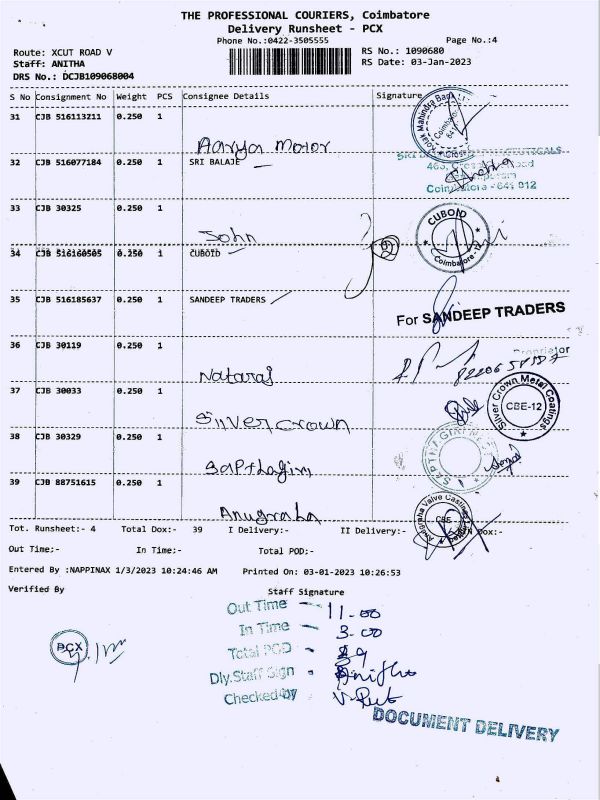 THE PROFESSIONAL COURIERS, Coimbatore
Delivery Runsheet - PCX
Phone No.:0422-3505555 Page No.:4
Route: XCUT ROAD V RS No.: 1090680
Staff: ANITHA RS Date: 03-Jan-2023
DRS No.: DCJB109068004
S No Consignment No Weight PCS Consignee Details Signature
31 CJB 516113211 0.250 1 Aarya Motor
Kotak Mahindra Bank
32 CJB 516077184 0.250 1 SRI BALAJE
Coimbatore - 641 012
33 CJB 30325 0.250 1 John
CUBOID
Coimbatore-12
34 CJB 516160505 0.250 1 CUBOID
35 CJB 516185637 0.250 1 SANDEEP TRADERS
For SANDEEP TRADERS
Proprietor
36 CJB 30119 0.250 1 Nataraj
37 CJB 30033 0.250 1 Silver crown
Silver Crown Metal Coatings
CBE-12
38 CJB 30329 0.250 1 Sapthagiri
39 CJB 88751615 0.250 1 Anugraha
Anugraha Valve Castings
CBE
Tot. Runsheet:- 4 Total Dox:- 39 I Delivery:- II Delivery:- Dox:-
Out Time:- In Time:- Total POD:-
Entered By :NAPPINAX 1/3/2023 10:24:46 AM Printed On: 03-01-2023 10:26:53
Verified By Staff Signature
Out Time - 11.00
In Time - 3.00
Total POD - 39
Dly.Staff Sign - Anitha
Checked by
PCX
DOCUMENT DELIVERY